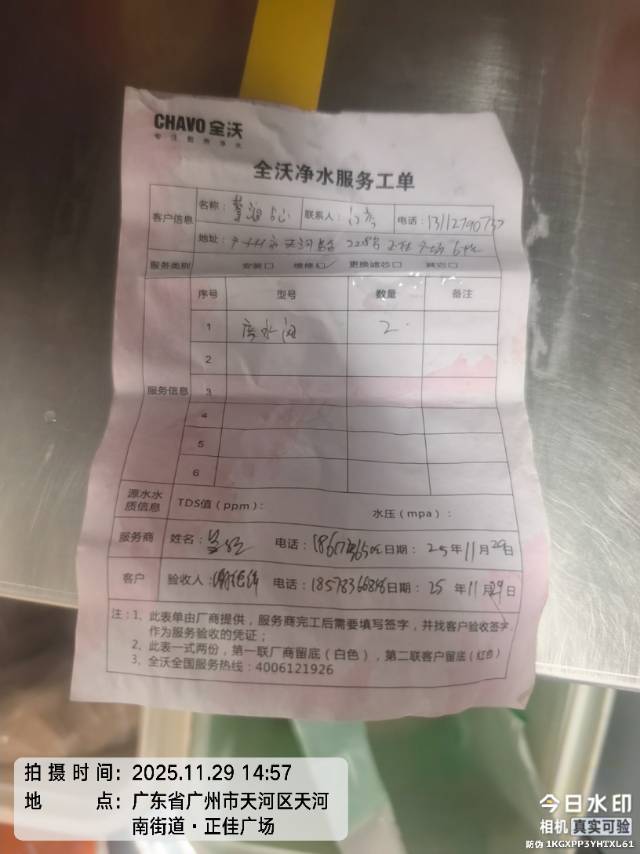 CHAVO 全沃
专 注 商 用 净 水
全沃净水服务工单
客户信息 名称: 联系人: 电话:
地址: 广州市天河路228号正佳广场6
服务类别 安装□ 维修□✓ 更换滤芯□ 其它□
服务信息 序号 型号 数量 备注
1 废水阀 2
2
3
4
5
6
源水水质信息 TDS值(ppm): 水压(mpa):
服务商 姓名: 电话: 日期: 25年11月29日
客户 验收人: 电话: 日期: 25年11月29日
注:1、此表单由厂商提供,服务商完工后需要填写签字,并找客户验收签字,
作为服务验收的凭证;
2、此表一式两份,第一联厂商留底(白色),第二联客户留底(红色)
3、全沃全国服务热线:4006121926
拍 摄 时 间: 2025.11.29 14:57
地 点: 广东省广州市天河区天河
南街道·正佳广场
今日水印
相机 真实可验
防伪 1KGXPP3YHTXL61